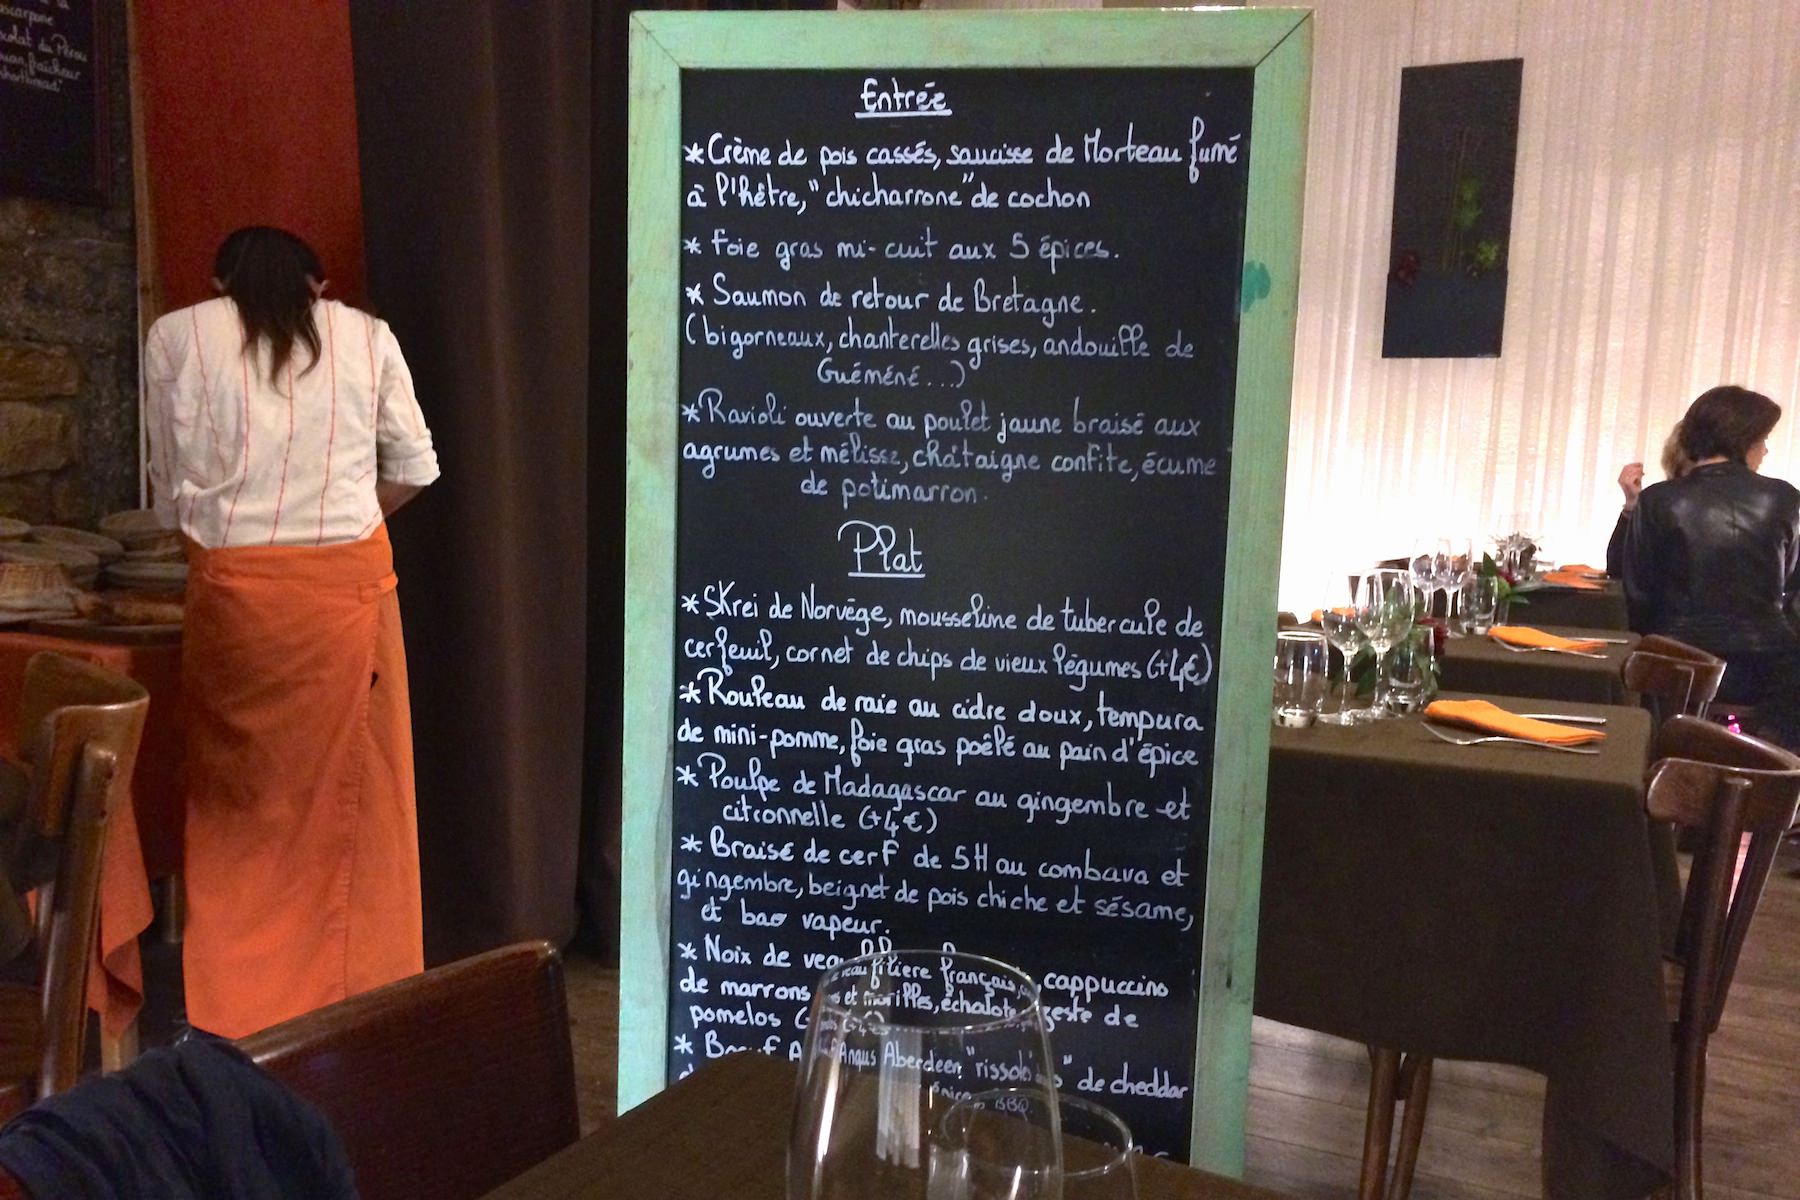 mascarpone
du Pérou
fraîcheur
shortbread"
Entrée
*Crème de pois cassés, saucisse de Morteau fumé
à l'hêtre, "chicharrone" de cochon
* Foie gras mi-cuit aux 5 épices.
* Saumon de retour de Bretagne.
(bigorneaux, chanterelles grises, andouille de
Guéméné...)
*Ravioli ouverte au poulet jaune braisé aux
agrumes et mélisse, châtaigne confite, écume
de potimarron.
Plat
*SKrei de Norvége, mousseline de tubercule de
cerfeuil, cornet de chips de vieux légumes (+4€)
*Rouleau de raie au cidre doux, tempura
de mini-pomme, foie gras poêlé au pain d'épice
* Poulpe de Madagascar au gingembre et
citronnelle (+4€)
* Braisé de cerf de 5H au combava et
gingembre, beignet de pois chiche et sésame,
et bao vapeur.
* Noix de veau filiere français, cappuccino
de marrons et morilles, échalote, zeste de
pomelos (+4€)
* Bœuf Angus Aberdeen, "rissoles" de cheddar
BBQ.